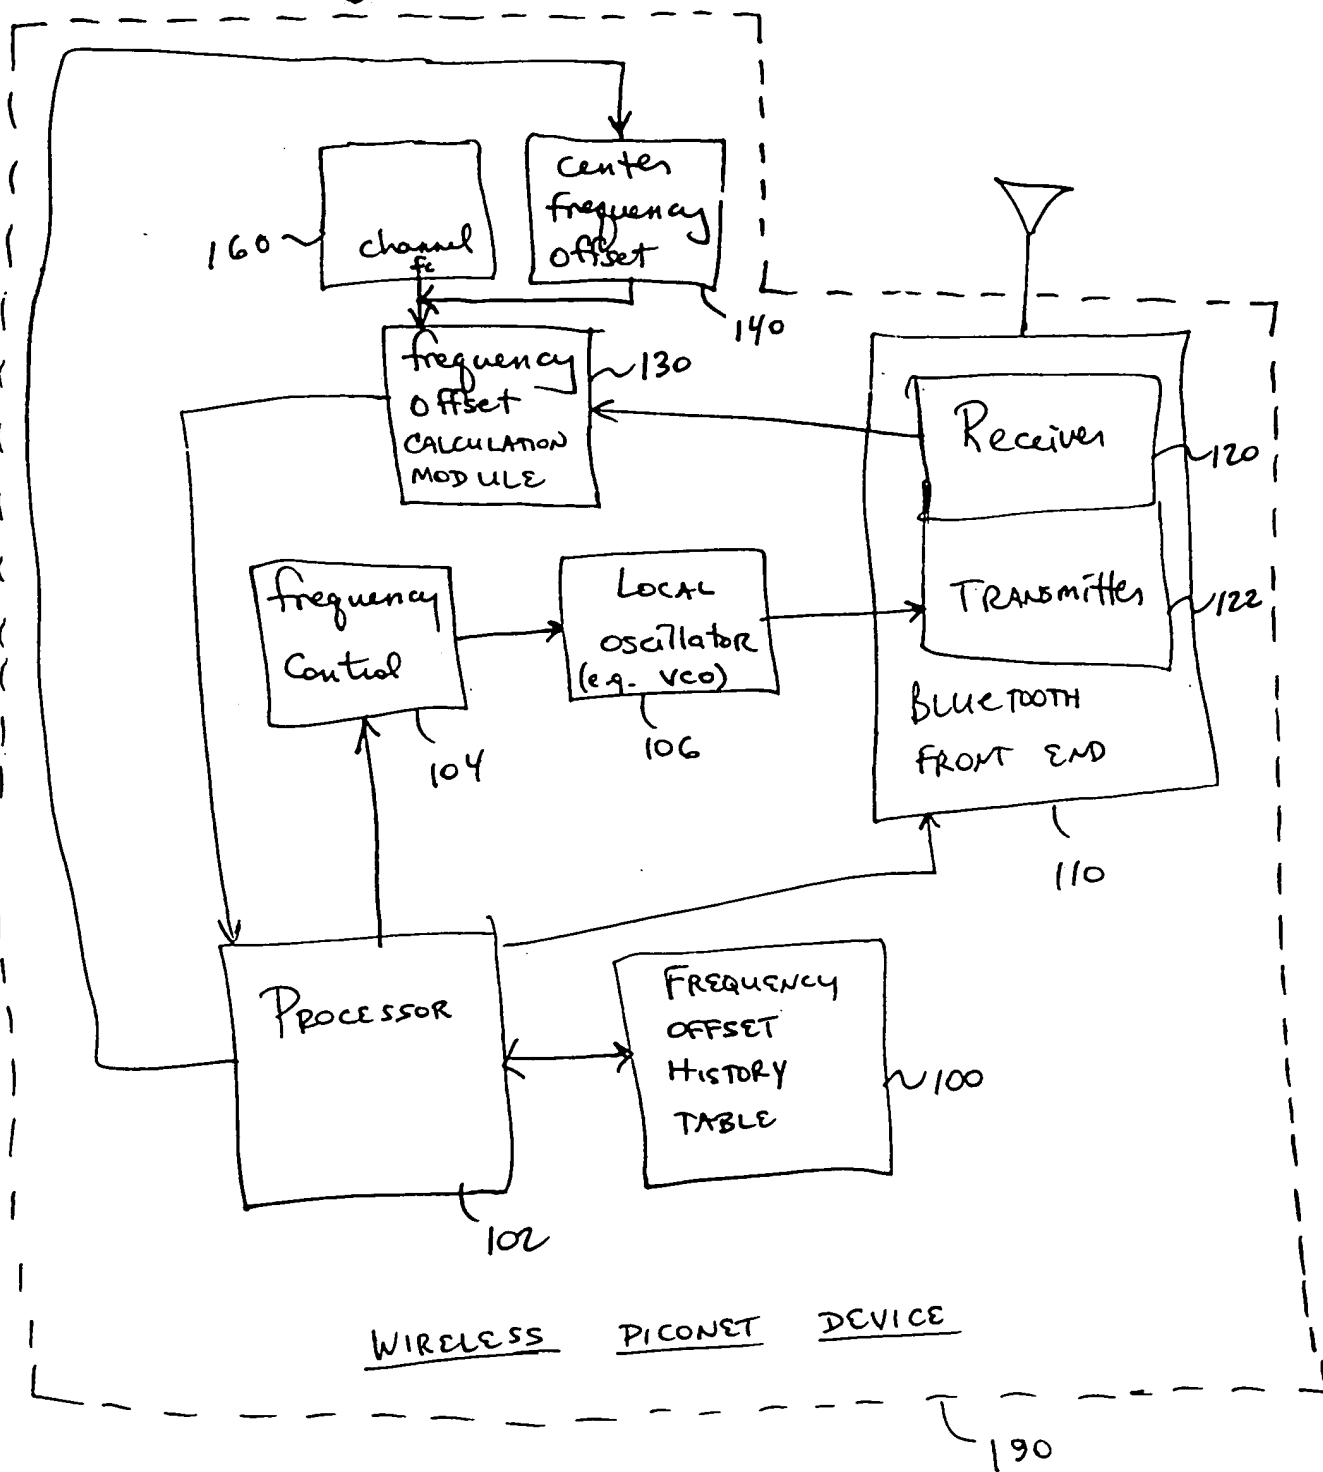 center
frequency
offset
160
channel
fc
140
frequency
offset
CALCULATION
MODULE
130
Receiver
120
TRANSMITTER
122
BLUETOOTH
FRONT END
110
frequency
Control
104
LOCAL
oscillator
(e.g. VCO)
106
PROCESSOR
102
FREQUENCY
OFFSET
HISTORY
TABLE
100
WIRELESS PICONET DEVICE
190